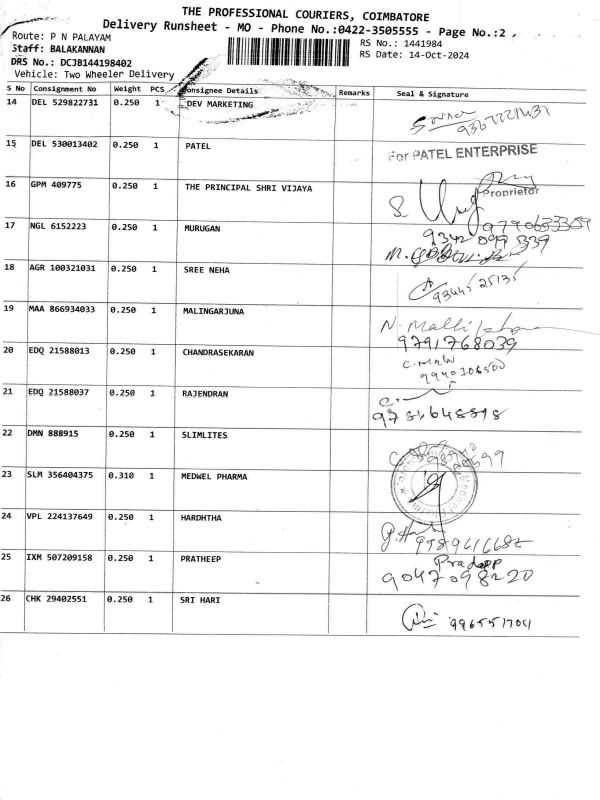 THE PROFESSIONAL COURIERS, COIMBATORE
Delivery Runsheet - MO - Phone No.:0422-3505555 - Page No.:2
Route: P N PALAYAM
RS No.: 1441984
Staff: BALAKANNAN
RS Date: 14-Oct-2024
DRS No.: DCJB144198402
Vehicle: Two Wheeler Delivery
S No Consignment No Weight PCS Consignee Details Remarks Seal & Signature
14 DEL 529822731 0.250 1 DEV MARKETING
15 DEL 530013402 0.250 1 PATEL For PATEL ENTERPRISE
Proprietor
16 GPM 409775 0.250 1 THE PRINCIPAL SHRI VIJAYA
17 NGL 6152223 0.250 1 MURUGAN
9342 099 339
18 AGR 100321031 0.250 1 SREE NEHA 93445 25135
19 MAA 866934033 0.250 1 MALINGARJUNA
9791768039
20 EDQ 21588013 0.250 1 CHANDRASEKARAN
9940306500
21 EDQ 21588037 0.250 1 RAJENDRAN
22 DMN 888915 0.250 1 SLIMLITES
23 SLM 356404375 0.310 1 MEDWEL PHARMA
24 VPL 224137649 0.250 1 HARDHTHA
25 IXM 507209158 0.250 1 PRATHEEP Pradeep
9047098220
26 CHK 29402551 0.250 1 SRI HARI 9965551704